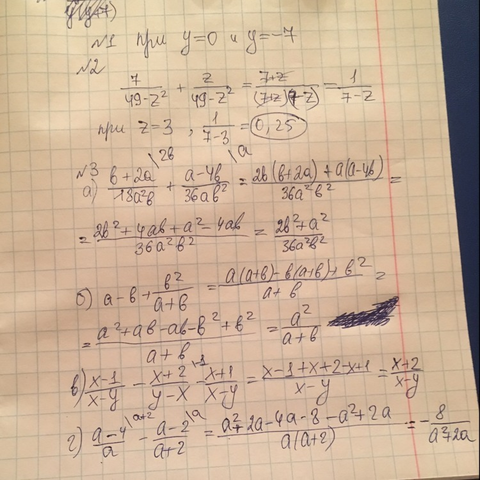 y(y+7)
N1 при y=0 и y=-7
N2
7/(49-z²) + z/(49-z²) = (7+z)/((7+z)(7-z)) = 1/(7-z)
при z=3, 1/(7-3) = 0,25
N3
а) (в+2a)/(18a²в) \2в + (a-4в)/(36aв²) \a = (2в(в+2a)+a(a-4в))/(36a²в²) =
= (2в²+4aв+a²-4aв)/(36a²в²) = (2в²+a²)/(36a²в²)
б) a-в+в²/(a+в) = (a(a+в)-в(a+в)+в²)/(a+в) =
= (a²+aв-aв-в²+в²)/(a+в) = a²/(a+в)
в) (x-1)/(x-y) - (x+2)/(y-x) \-1 - (x+1)/(x-y) = (x-1+x+2-x+1)/(x-y) = (x+2)/(x-y)
г) (a-4)/a \a+2 - (a-2)/(a+2) \a = (a²+2a-4a-8-a²+2a)/(a(a+2)) = -8/(a²+2a)